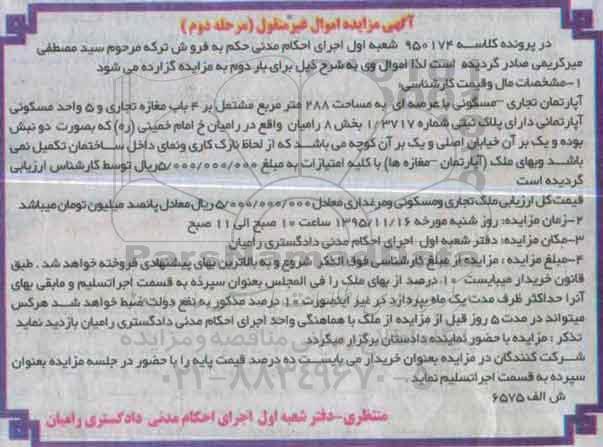 آگهی مزایده اموال غیرمنقول (مرحله دوم)
در پرونده کلاسه ۹۵۰۱۷۴ شعبه اول اجرای احکام مدنی حکم به فروش ترکه مرحوم سید مصطفی
میرکریمی صادر گردیده است لذا اموال وی به شرح ذیل برای بار دوم به مزایده گزارده می شود
۱-مشخصات مال وقیمت کارشناسی:
آپارتمان تجاری -مسکونی با عرصه ای به مساحت ۲۸۸ متر مربع مشتمل بر ۴ باب مغازه تجاری و ۵ واحد مسکونی
آپارتمانی دارای پلاک ثبتی شماره ۱/۳۷۱۷ بخش ۸ رامیان واقع در رامیان خ امام خمینی (ره) که بصورت دو نبش
بوده و یک بر آن خیابان اصلی و یک بر آن کوچه می باشد که از لحاظ نازک کاری ونمای داخل ساختمان تکمیل نمی
باشد وبهای ملک (آپارتمان -مغازه ها) با کلیه امتیازات به مبلغ ۵/۰۰۰/۰۰۰/۰۰۰ریال توسط کارشناس ارزیابی
گردیده است
قیمت کل ارزیابی ملک تجاری ومسکونی ومرغداری معادل ۵/۰۰۰/۰۰۰/۰۰۰ ریال معادل پانصد میلیون تومان میباشد
۲-زمان مزایده: روز شنبه مورخه ۱۳۹۵/۱۱/۱۶ ساعت ۱۰ صبح الی ۱۱ صبح
۳-مکان مزایده: دفتر شعبه اول اجرای احکام مدنی دادگستری رامیان
۴-مبلغ مزایده : مزایده از مبلغ کارشناسی فوق الذکر شروع و به بالاترین بهای پیشنهادی فروخته خواهد شد . طبق
قانون خریدار میبایست ۱۰ درصد از بهای ملک را فی المجلس بعنوان سپرده به قسمت اجراتسلیم و مابقی بهای
آنرا حداکثر ظرف مدت یک ماه بپردازد در غیر اینصورت ۱۰ درصد مذکور به نفع دولت ضبط خواهد شد هرکس
میتواند در مدت ۵ روز قبل از مزایده از ملک با هماهنگی واحد اجرای احکام مدنی دادگستری رامیان بازدید نماید
تذکر : مزایده با حضور نماینده دادستان برگزار میگردد.
شرکت کنندگان در مزایده بعنوان خریدار می بایست ده درصد قیمت پایه را با حضور در جلسه مزایده بعنوان
سپرده به قسمت اجراتسلیم نماید
ش الف ۶۵۷۵
منتظری-دفتر شعبه اول اجرای احکام مدنی دادگستری رامیان
۰۲۱-۸۸۳۴۹۶۷۰